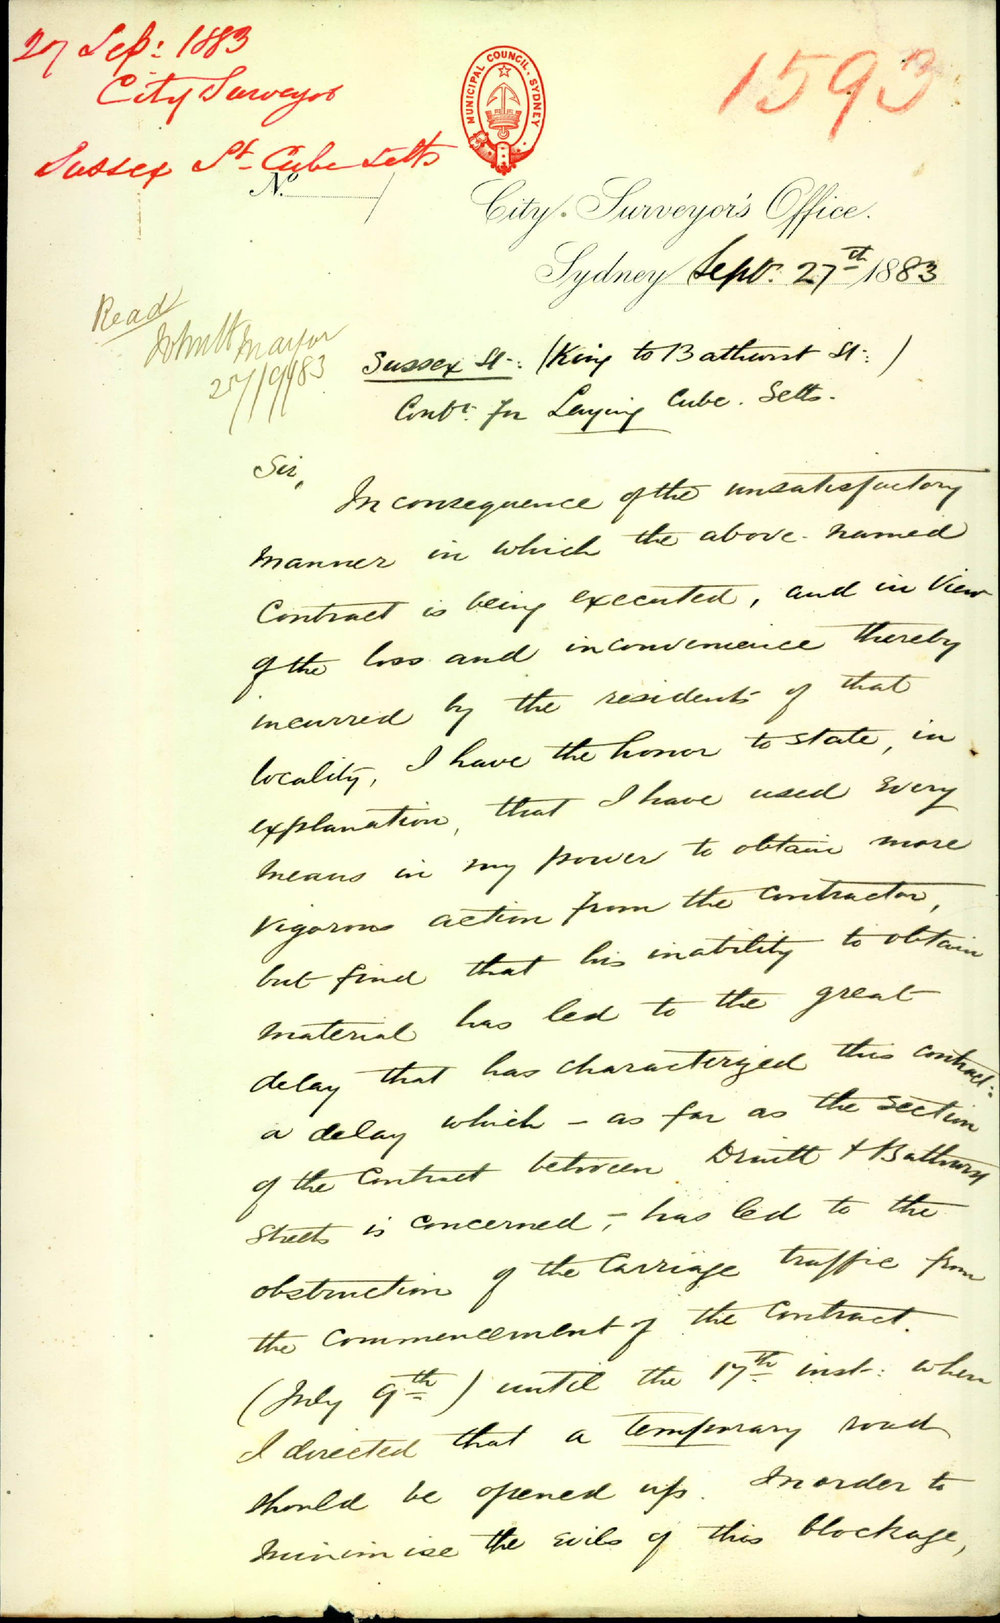 27 Sep: 1883
City Surveyor
Sussex St. Cube Setts
1593
MUNICIPAL COUNCIL. SYDNEY
No.
City Surveyor's Office.
Sydney Sept: 27th 1883
Read
Mayor
27/9/83
Sussex St: (King to Bathurst St:)
Cont: for Laying Cube Setts.
Sir,
In consequence of the unsatisfactory
manner in which the above named
Contract is being executed, and in view
of the loss and inconvenience thereby
incurred by the residents of that
locality, I have the honor to state, in
explanation, that I have used every
means in my power to obtain more
vigorous action from the Contractor,
but find that his inability to obtain
material has led to the great
delay that has characterized this contract:
a delay which – as far as the section
of the Contract between Druitt & Bathurst
Streets is concerned, – has led to the
obstruction of the Carriage traffic from
the Commencement of the Contract.
(July 9th) until the 17th inst: when
I directed that a temporary road
should be opened up. In order to
minimise the evils of this blockage,